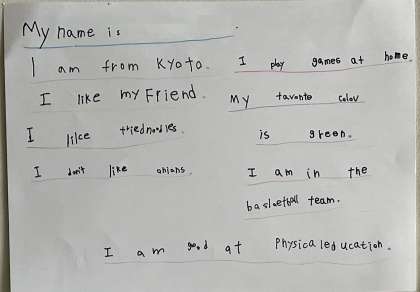 My name is .
I am from Kyoto.
I like my Friend.
I lilce triednoodles.
I don't like onions.
I play games at home.
My tavonte colov
is green.
I am in the
basletball team.
I am good at Physicaleducation.